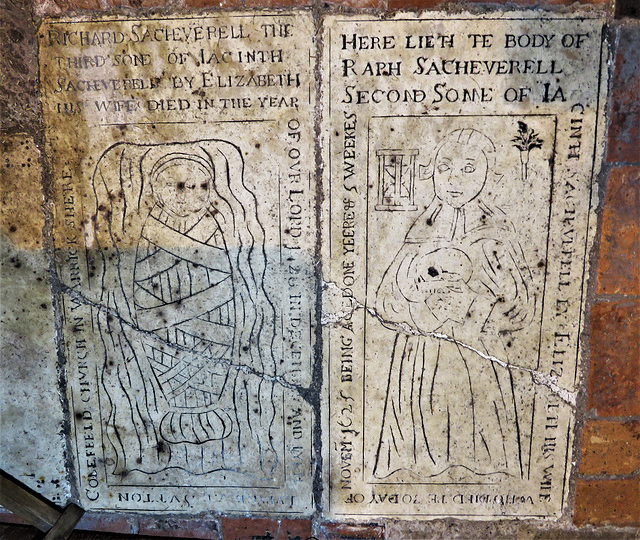 RICHARD SACHEVERELL THE
THIRD SONE OF IACINTH
SACHEVERELL BY ELIZABETH
HIS WIFE DIED IN THE YEAR
OF OVR LORD
AND
SVTTON
COLEFEELD CHVRCH IN WARWICK SHERE
HERE LIETH TE BODY OF
RAPH SACHEVERELL
SECOND SONE OF IA
CINTH SACHEVERELL BY ELIZ
HIS WIFE
WHO DIED TE 30 DAY OF
NOVEM 1625 BEING AGED ONE YEERE & 5 WEEKES